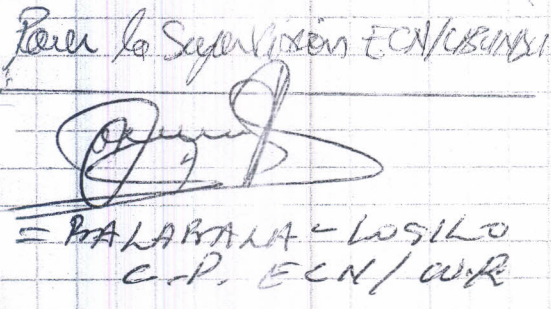 Pour la Supervision ECN/UBUNDU
= BALABALA - LOSILO
C.P. ECN/